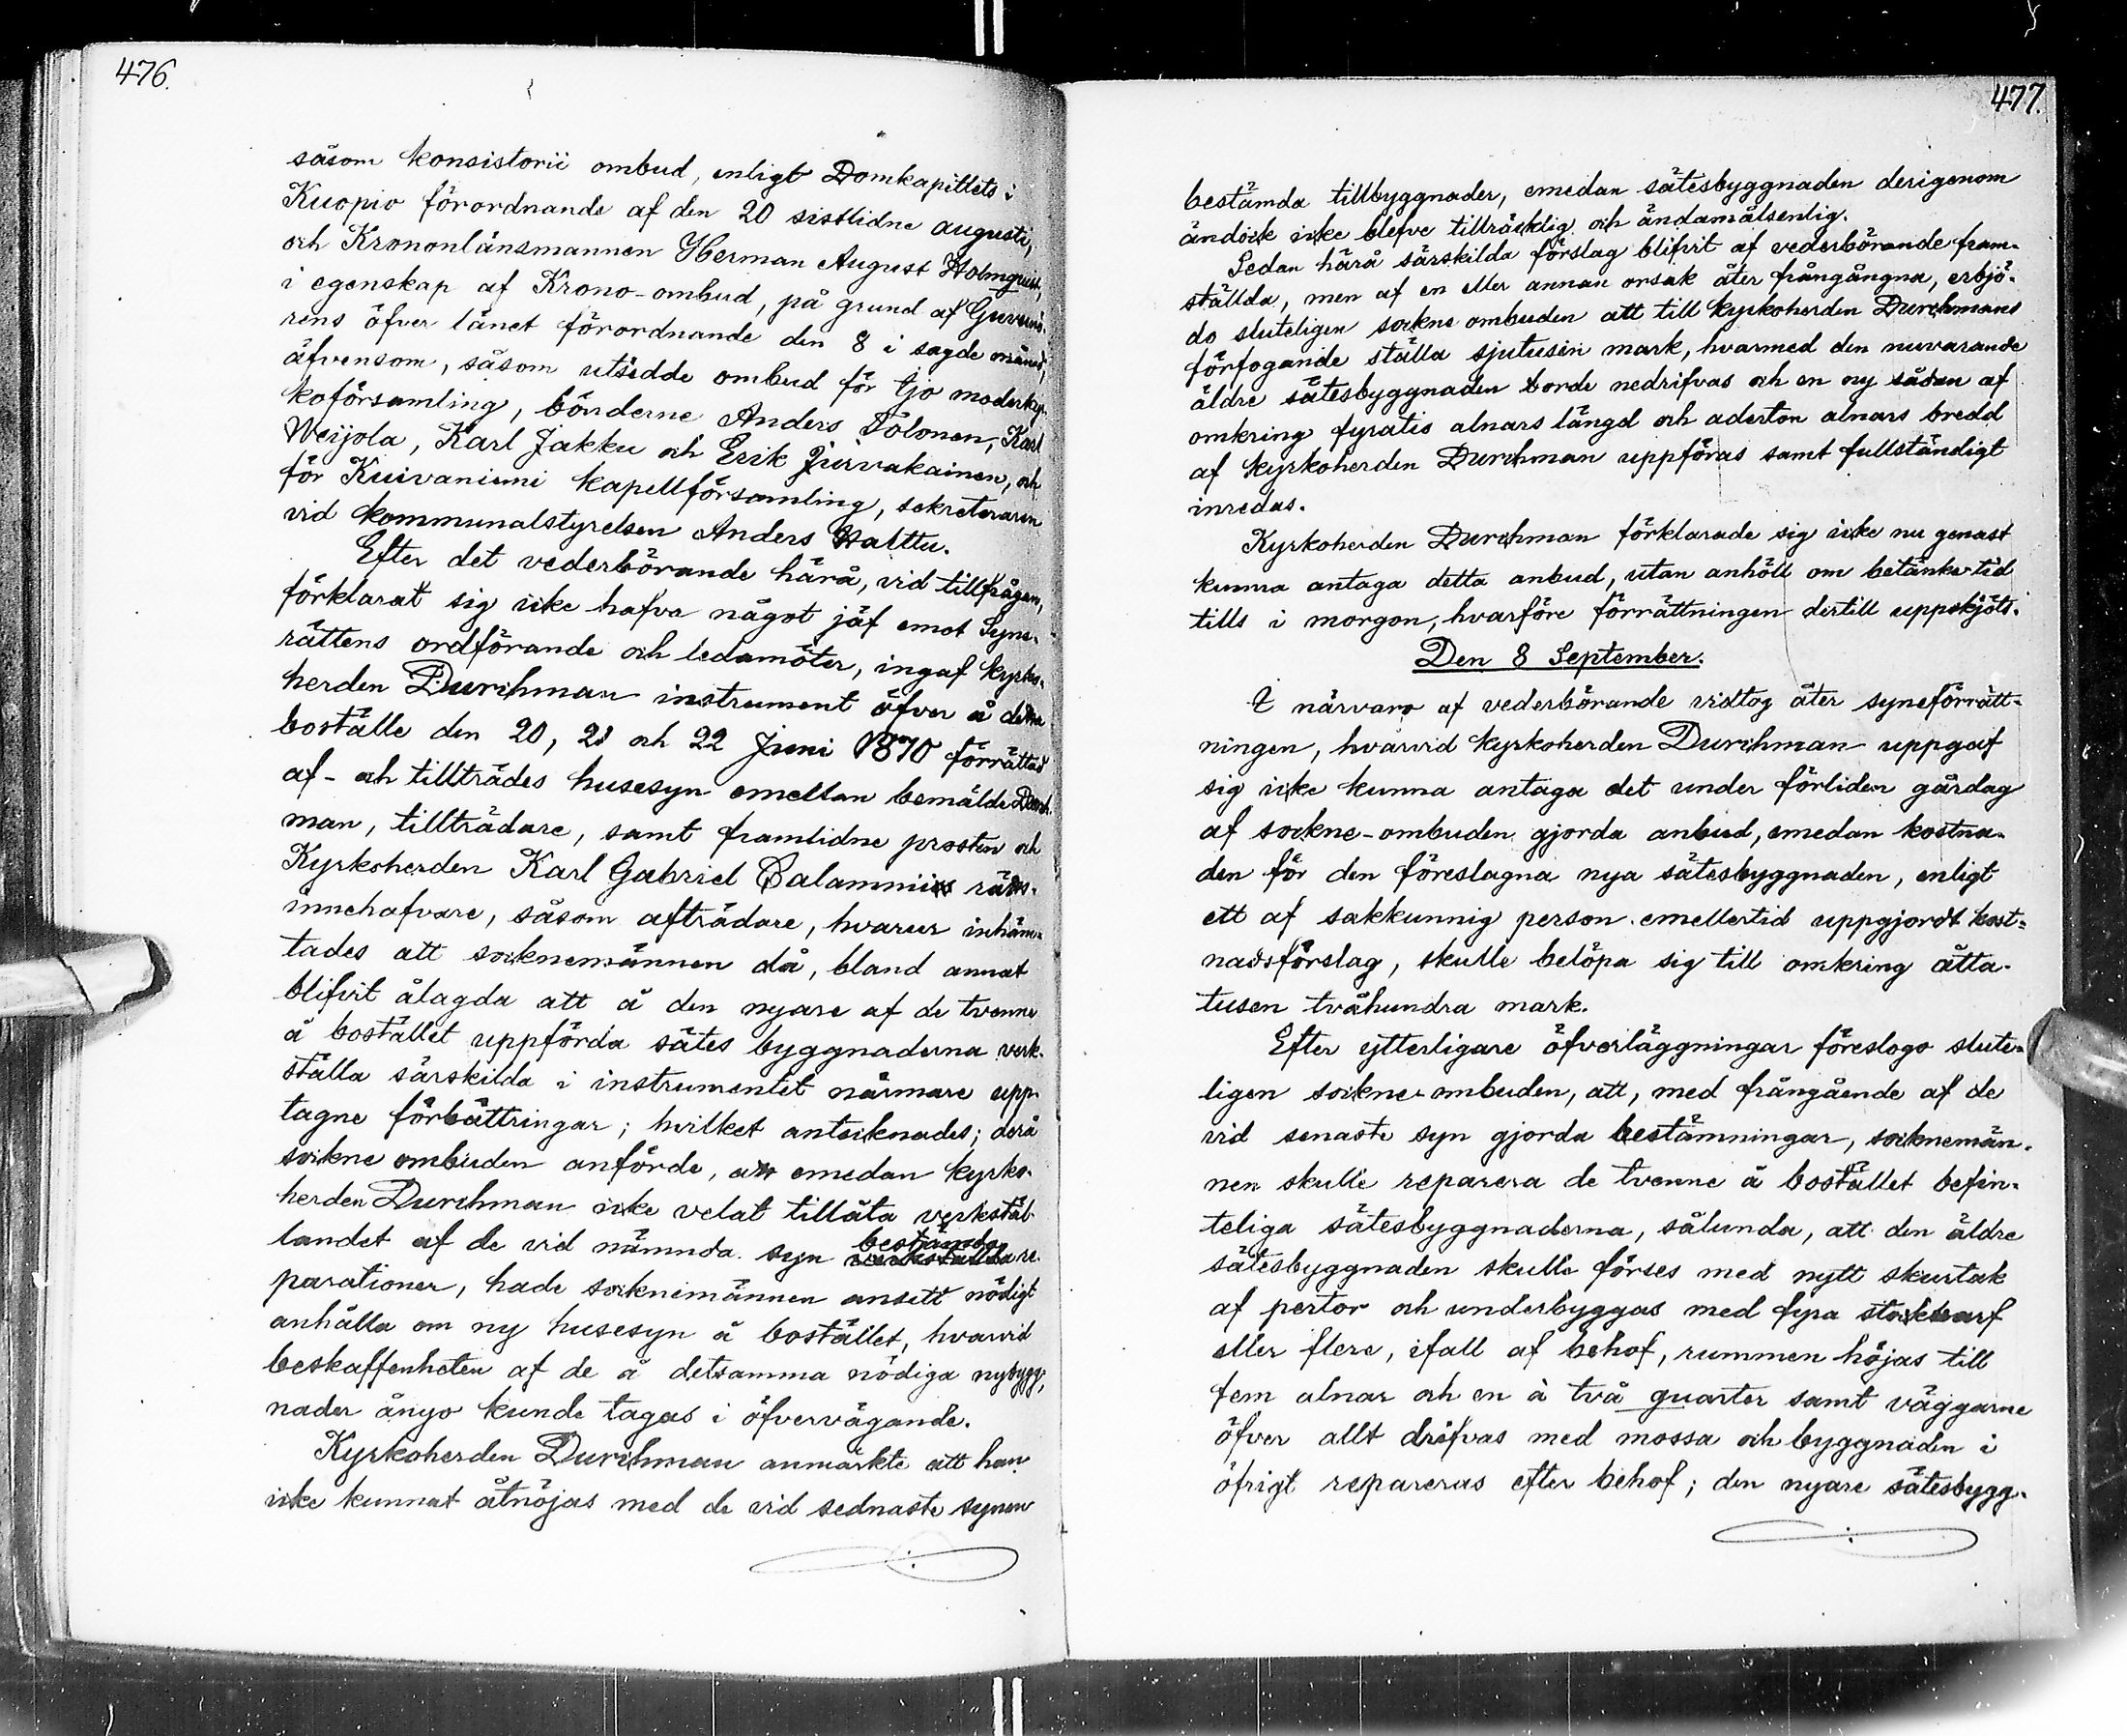 476.
såsom konsistorii ombud, enligt Domkapitlets i
Kuopio förordnande af den 20 sistlidne augusti,
och Krononlänsmannen Herman August Holmquist,
i egenskap af Krono-ombud, på grund af Guvernö-
rens öfver länet förordnande den 8 i sagde månad,
äfvensom, såsom utsedde ombud för Ijo moderkyr-
koförsamling, bönderne Anders Tolonen, Karl
Weijola, Karl Jakku och Erik Jurvakainen, och
för Kuivaniemi kapellförsamling, sekreteraren
vid kommunalstyrelsen Anders Halttu.
Efter det vederbörande härå, vid tillfrågan,
förklarat sig icke hafva något jäf emot Syne-
rättens ordförande och ledamöter, ingaf kyrko-
herden Durchman instrument öfver å detta
boställe den 20, 21 och 22 Juni 1870 förrättad
af- och tillträdes husesyn emellan bemälde Durch-
man, tillträdare, samt framlidne prosten och
Kyrkoherden Karl Gabriel Calamnii rätts-
innehafvare, såsom afträdare, hvarur inhäm-
tades att socknemännen då, bland annat
blifvit ålagda att å den nyare af de tvenne
å bostället uppförda sätes byggnaderna verk-
ställa särskilda i instrumentet närmare upp-
tagne förbättringar; hvilket antecknades; derå
sockne ombuden anförde, att emedan kyrko-
herden Durchman icke velat tillåta verkstäl-
landet af de vid nämnda syn bestämda re-
parationer, hade socknemännen ansett nödigt
anhålla om ny husesyn å bostället, hvarvid
beskaffenheten af de å detsamma nödiga nybygg-
nader ånyo kunde tagas i öfvervägande.
Kyrkoherden Durchman anmärkte att han
icke kunnat åtnöjas med de vid sednaste synen
477.
bestämda tillbyggnader, emedan sätesbyggnaden derigenom
ändock icke blefve tillräcklig och ändamålsenlig.
Sedan härå särskilda förslag blifvit af vederbörande fram-
ställda, men af en eller annan orsak åter frångångna, erbjö-
do sluteligen sockne ombuden att till kyrkoherden Durchmans
förfogande ställa sjutusen mark, hvarmed den nuvarande
äldre sätesbyggnaden borde nedrifvas och en ny sådan af
omkring fyratio alnars längd och aderton alnars bredd
af kyrkoherden Durchman uppföras samt fullständigt
inredas.
Kyrkoherden Durchman förklarade sig icke nu genast
kunna antaga detta anbud, utan anhöll om betänketid
tills i morgon, hvarföre förrättningen dertill uppskjöts.
Den 8 September.
I närvaro af vederbörande vidtog åter syneförrätt-
ningen, hvarvid kyrkoherden Durchman uppgaf
sig icke kunna antaga det under förliden gårdag
af sockne-ombuden gjorda anbud, emedan kostna-
den för den föreslagna nya sätesbyggnaden, enligt
ett af sakkunnig person emellertid uppgjordt kost-
nadsförslag, skulle belöpa sig till omkring åtta-
tusen tvåhundra mark.
Efter ytterligare öfverläggningar föreslogo slute-
ligen sockne-ombuden, att, med frångående af de
vid senaste syn gjorda bestämningar, socknemän-
nen skulle reparera de tvenne å bostället befin-
teliga sätesbyggnaderna, sålunda, att den äldre
sätesbyggnaden skulle förses med nytt skurtak
af pertor och underbyggas med fyra stockhvarf
eller flere, ifall af behof, rummen höjas till
fem alnar och en à två quarter samt väggarne
öfver allt drifvas med mossa och byggnaden i
öfrigt repareras efter behof; den nyare sätesbygg-